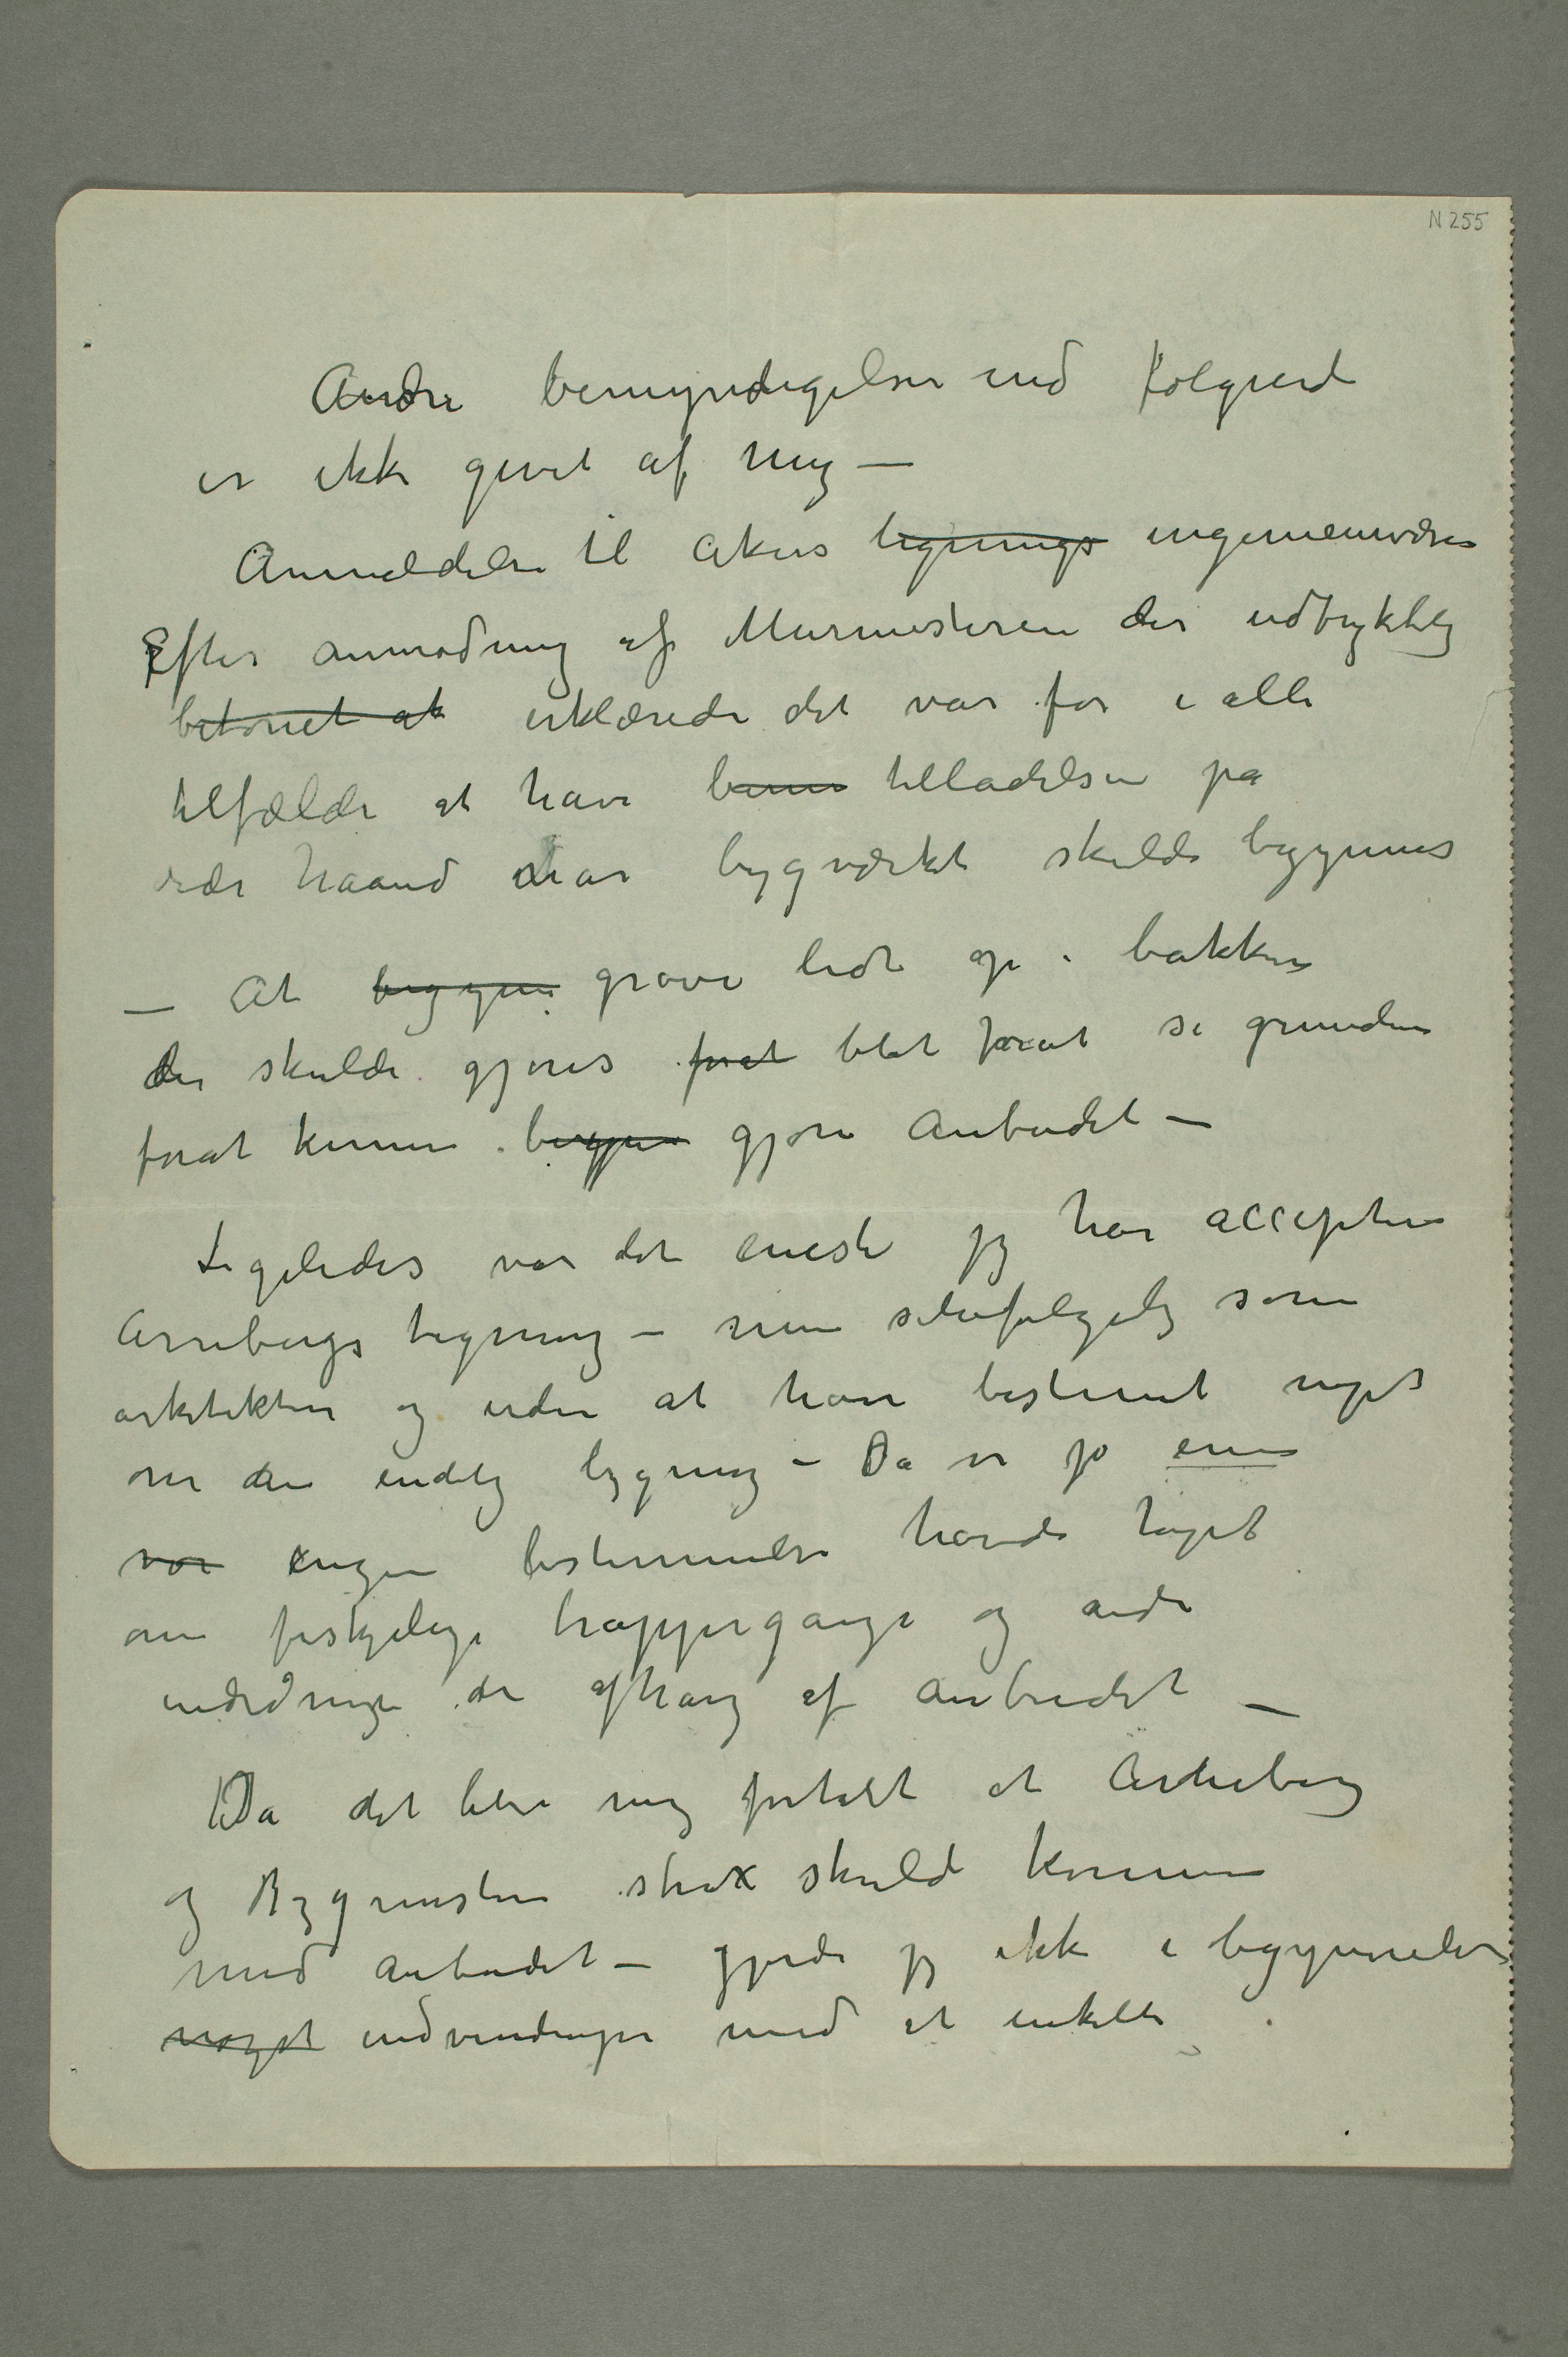 N 255
Andre bemyndigelser end følgende
er ikke givet af mig —
Anmeldelse til Akers lignings ingeniørvæsen
Efter anmodning af Murmesteren der udtrykkelig
betonet at erklærede det var for i alle
tilfælde at have tilladelsen på
rede haand når bygværket skulde begynnes
— At begynne grave lidt op i bakken
der skulde gjøres forat blot forat se grunden
forat kunne begynne gjøre Anbudet —
Ligeledes var det eneste jeg har acceptere
Arnebergs tegning – men selvfølgelig som
arkitekten og uden at have bestemt noget
om den endelig bygning – Da vi jo
var ingen bestemmelse havde taget
om forskjelige trappergange og andre
indredninger der afhang af anbudet —
Da det blev mig fortalt at Arneberg
og Bygmesteren strax skulde komme
med anbudet – gjorde jeg ikke i begynnelsen
noget indvendinger med et enkelte